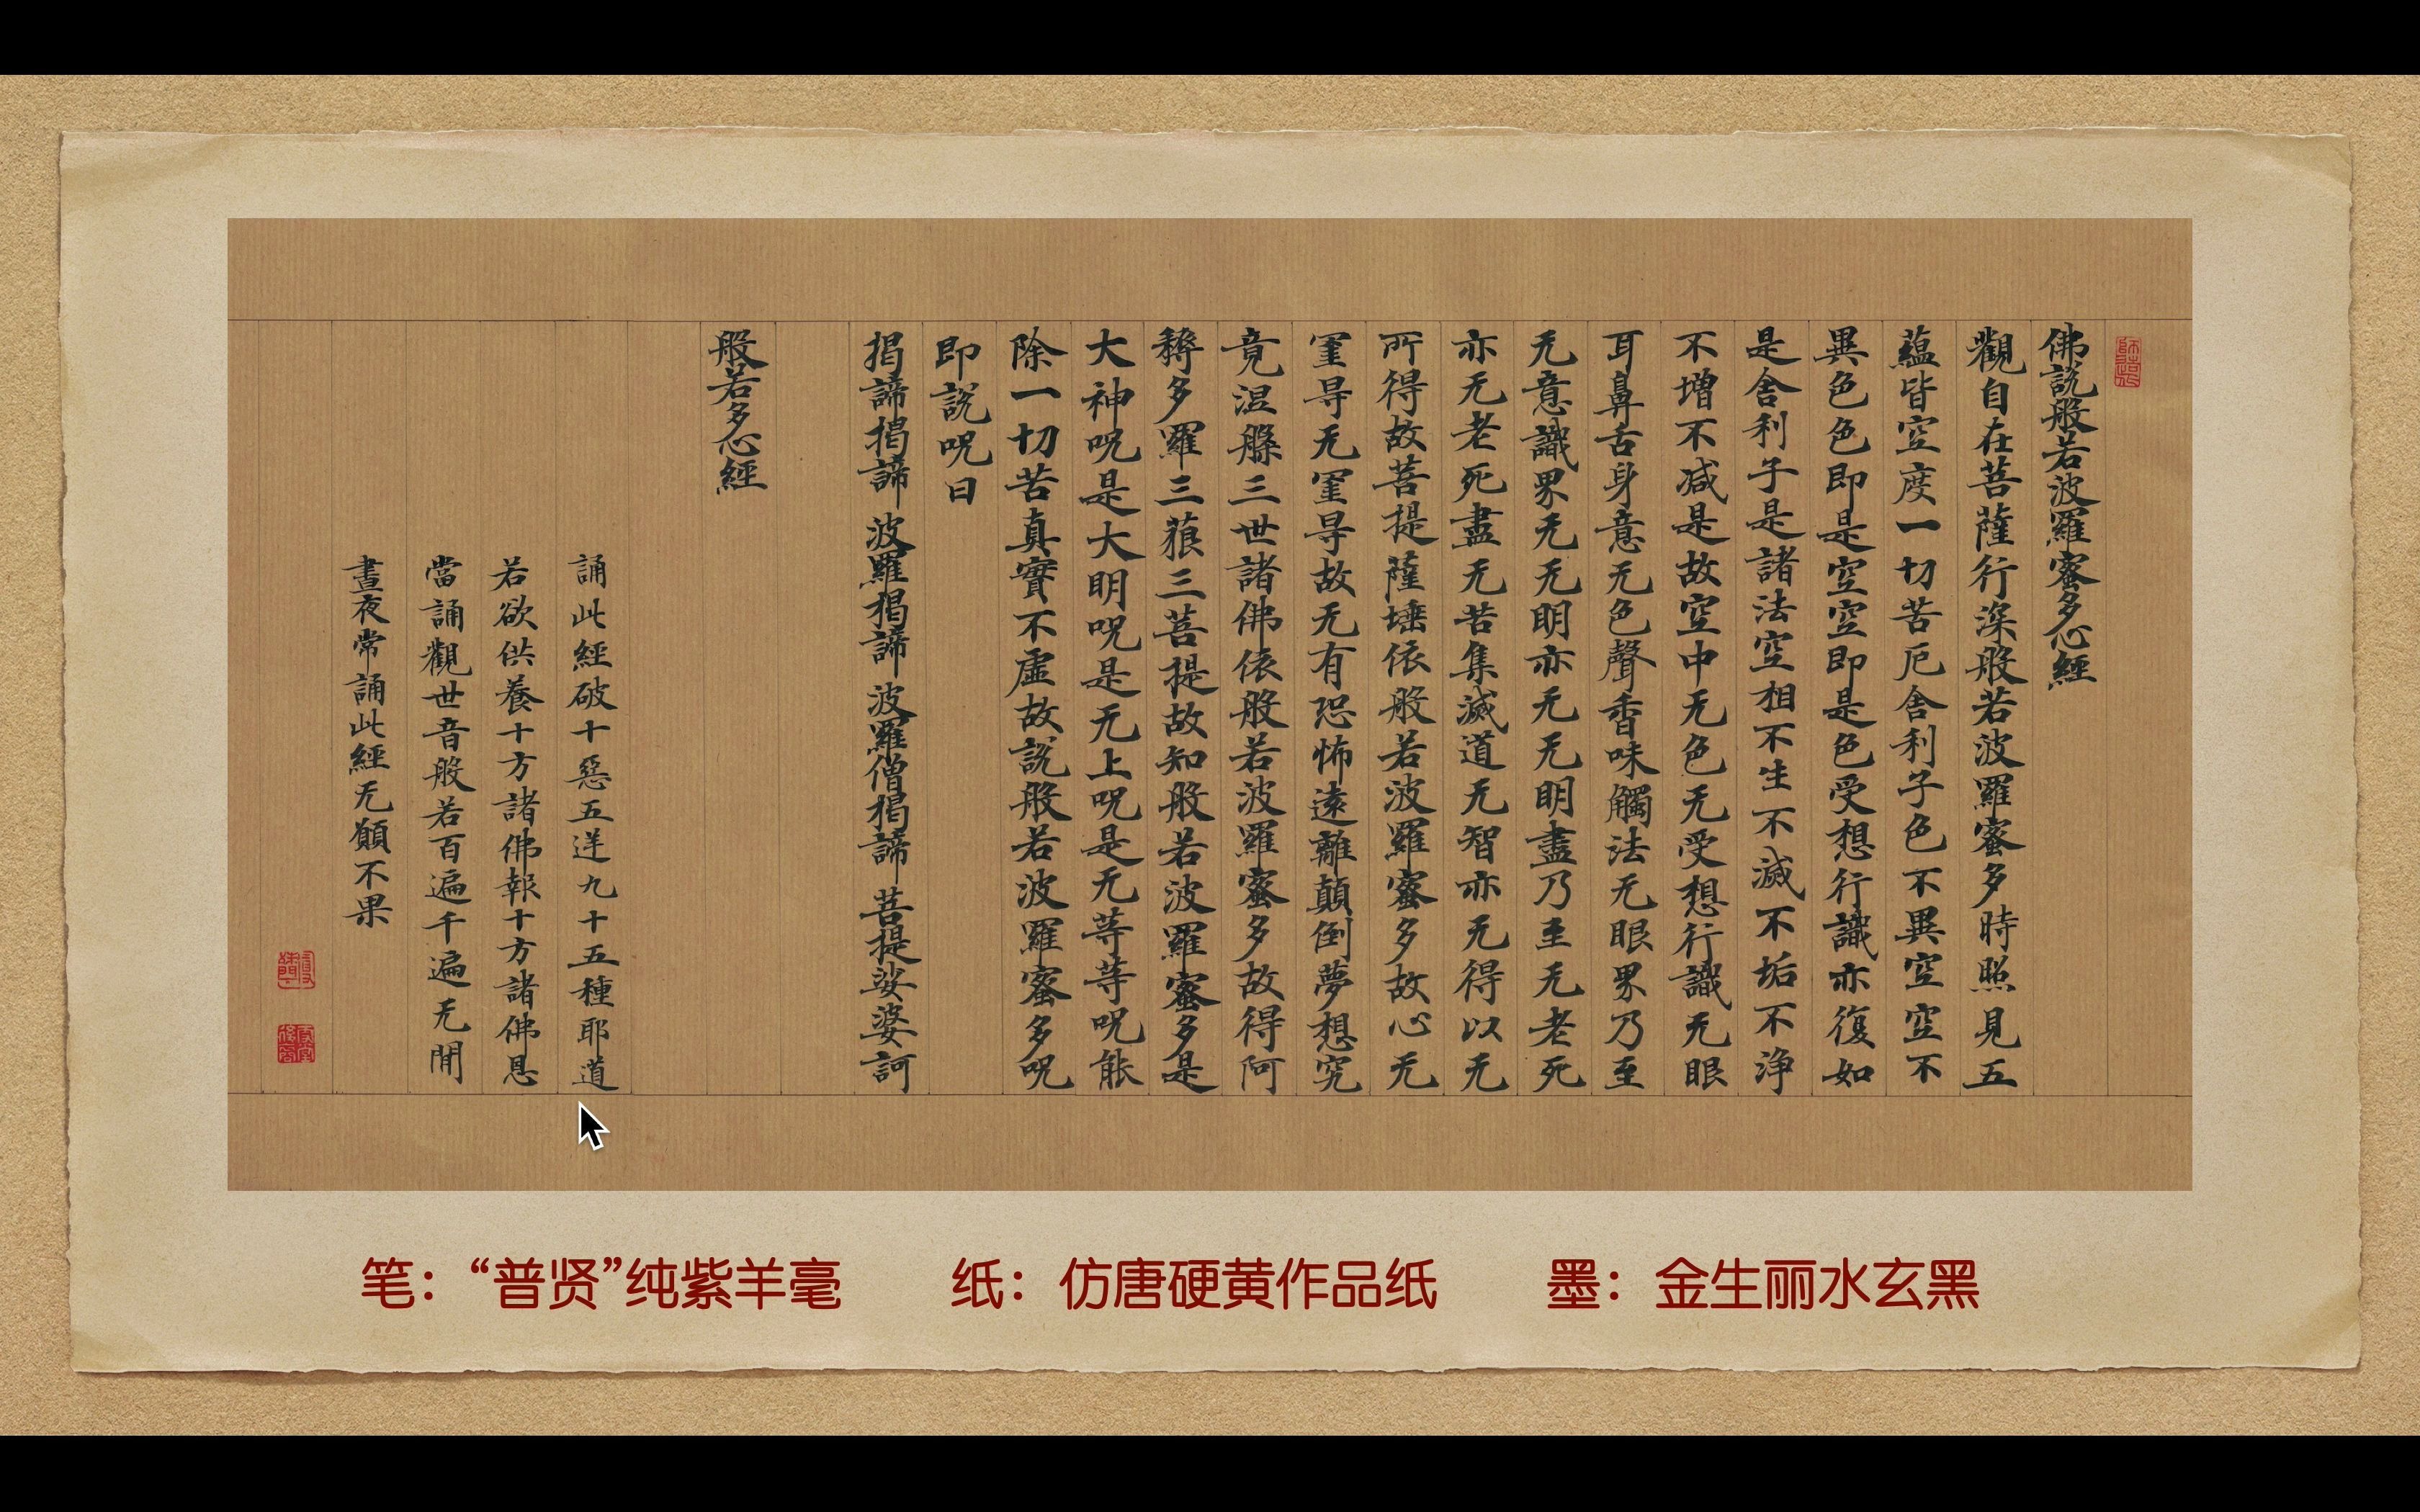 佛說般若波羅蜜多心經
觀自在菩薩行深般若波羅蜜多時照見五
蘊皆空度一切苦厄舍利子色不異空空不
異色色即是空空即是色受想行識亦復如
是舍利子是諸法空相不生不滅不垢不淨
不增不減是故空中无色无受想行識无眼
耳鼻舌身意无色聲香味觸法无眼界乃至
无意識界无无明亦无无明盡乃至无老死
亦无老死盡无苦集滅道无智亦无得以无
所得故菩提薩埵依般若波羅蜜多故心无
罣㝵无罣㝵故无有恐怖遠離顛倒夢想究
竟涅槃三世諸佛依般若波羅蜜多故得阿
耨多羅三藐三菩提故知般若波羅蜜多是
大神呪是大明呪是无上呪是无等等呪能
除一切苦真實不虛故說般若波羅蜜多呪
即說呪曰
揭諦揭諦 波羅揭諦 波羅僧揭諦 菩提娑婆訶
般若多心經
誦此經破十惡五逆九十五種耶道
若欲供養十方諸佛報十方諸佛恩
當誦觀世音般若百遍千遍无閒
晝夜常誦此經无願不果
笔：“普贤”纯紫羊毫 纸：仿唐硬黄作品纸 墨：金生丽水玄黑